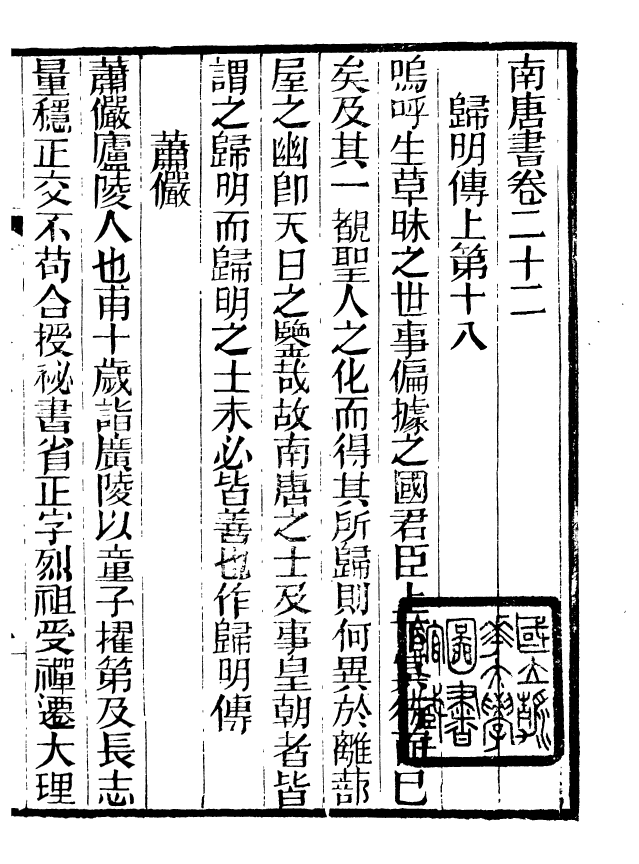 南唐書卷二十二
歸明傳上第十八
嗚呼生草昧之世事偏據之國君臣上而已
矣及其一覩聖人之化而得其所歸則何異於離蔀
屋之幽卽天日之鑒哉故南唐之士及事皇朝者皆
謂之歸明而歸明之士未必皆善也作歸明傳
蕭儼
蕭儼廬陵人也甫十歲詣廣陵以童子擢第及長志
量穩正交不苟合授祕書省正字烈祖受禪遷大理
國立
大學
圖書
館